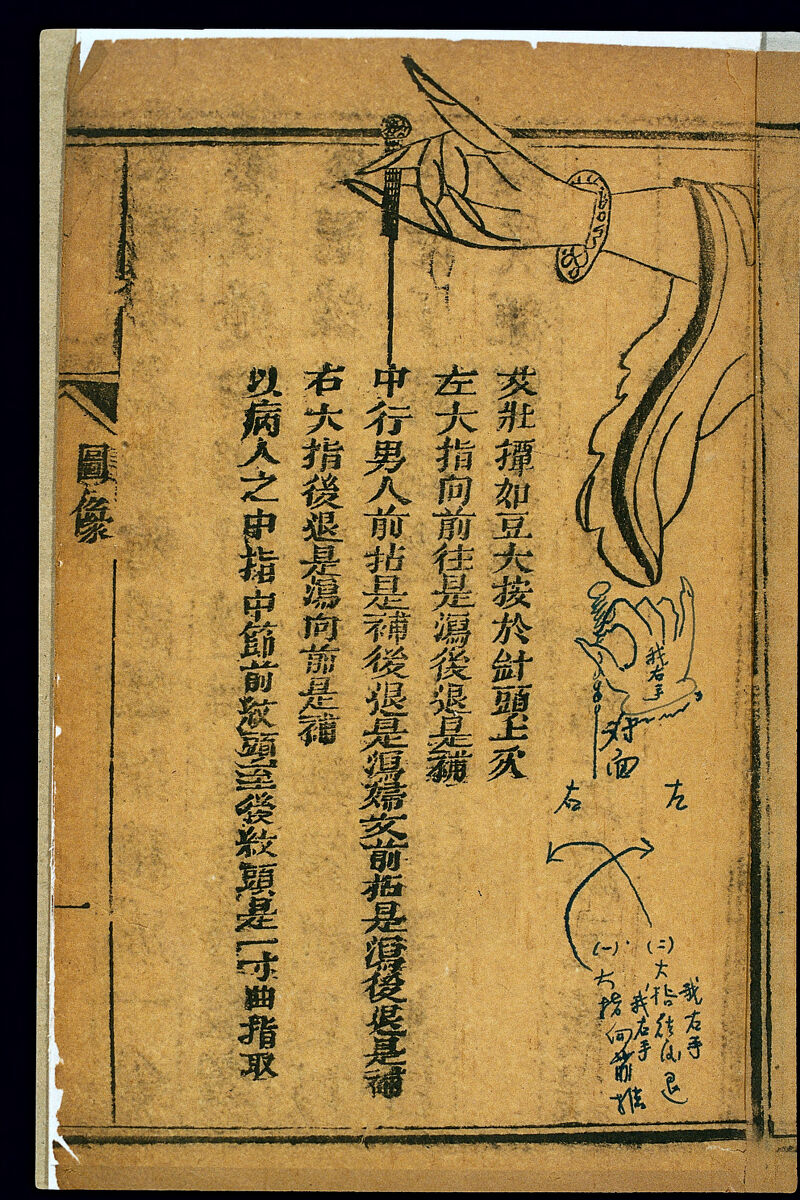 艾壯撢如豆大按於針頭上灸
左大指向前往是瀉後退是補
中行男人前拈是補後退是瀉婦女前拈是瀉後退是補
右大指後退是瀉向前是補
以病人之中指中節前紋頭至後紋頭是一寸曲指取
圖像
一
我右手
对面
左
右
(二)大指往后退
我右手
(一)大指向前推
我右手